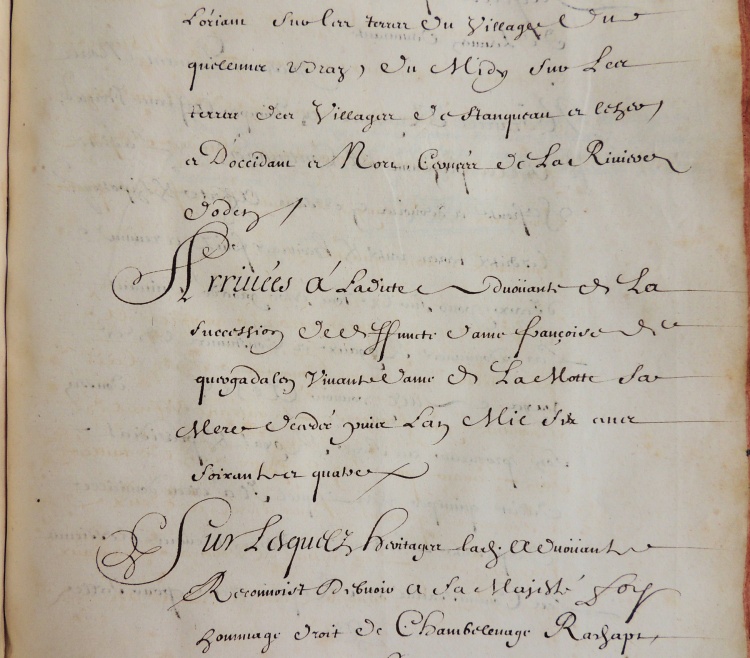 Loriant sur les terres du Village du
quelennec Vraz, du Midy sur Les
terres des Villages de Stanqueau et
et Doccidant et Nort Cernées de La Riviere
dodet /
Arriuées á Ladicte aduoüante de La
succession de deffuncte dame françoise de
quergadalen Viuante dame de La Motte sa
Mere decedée Lan Mil six cents
soixante et quatre
Sur Lesquelz heritages lad. Aduoüante
Reconnoist Debuoir a Sa Majesté foy
hommage droit de Chambelenage Rachapt,